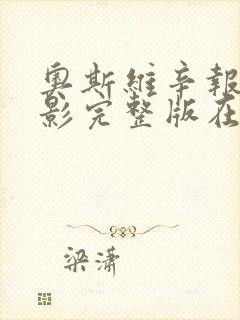 奥斯維辛報
影完整版在
梁潇